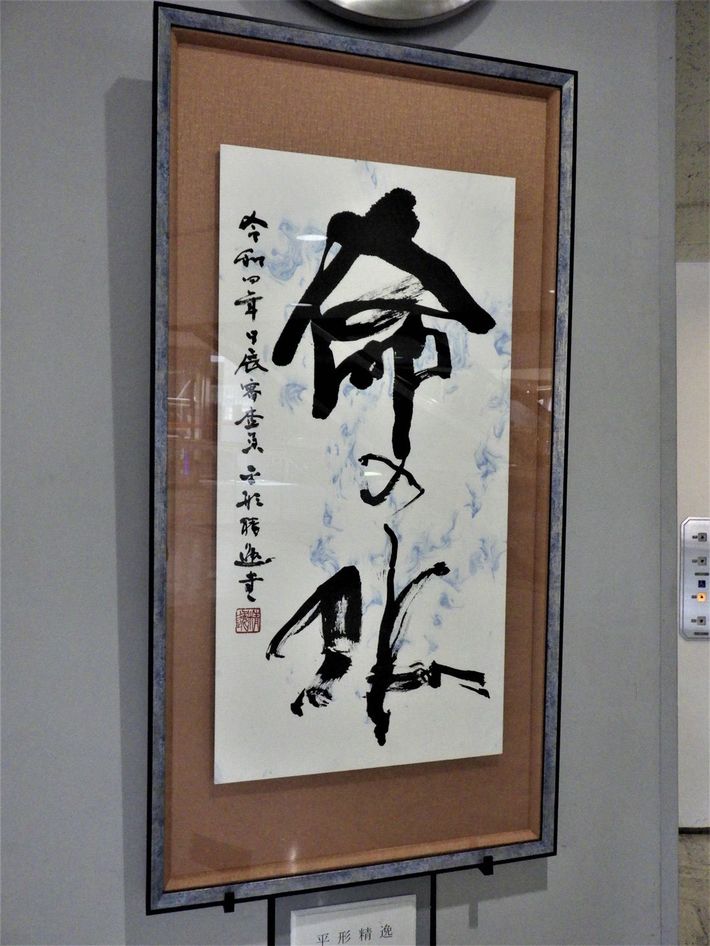 命の水
令和四年日展審査員平形精逸書
平形精逸